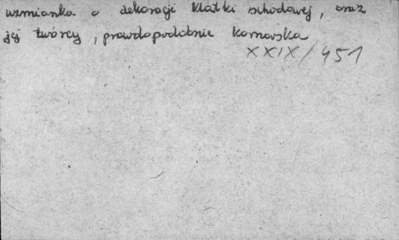 wzmianka o dekoracji klatki schodowej, oraz
jej twórcy, prawdopodobnie
XXIX/451